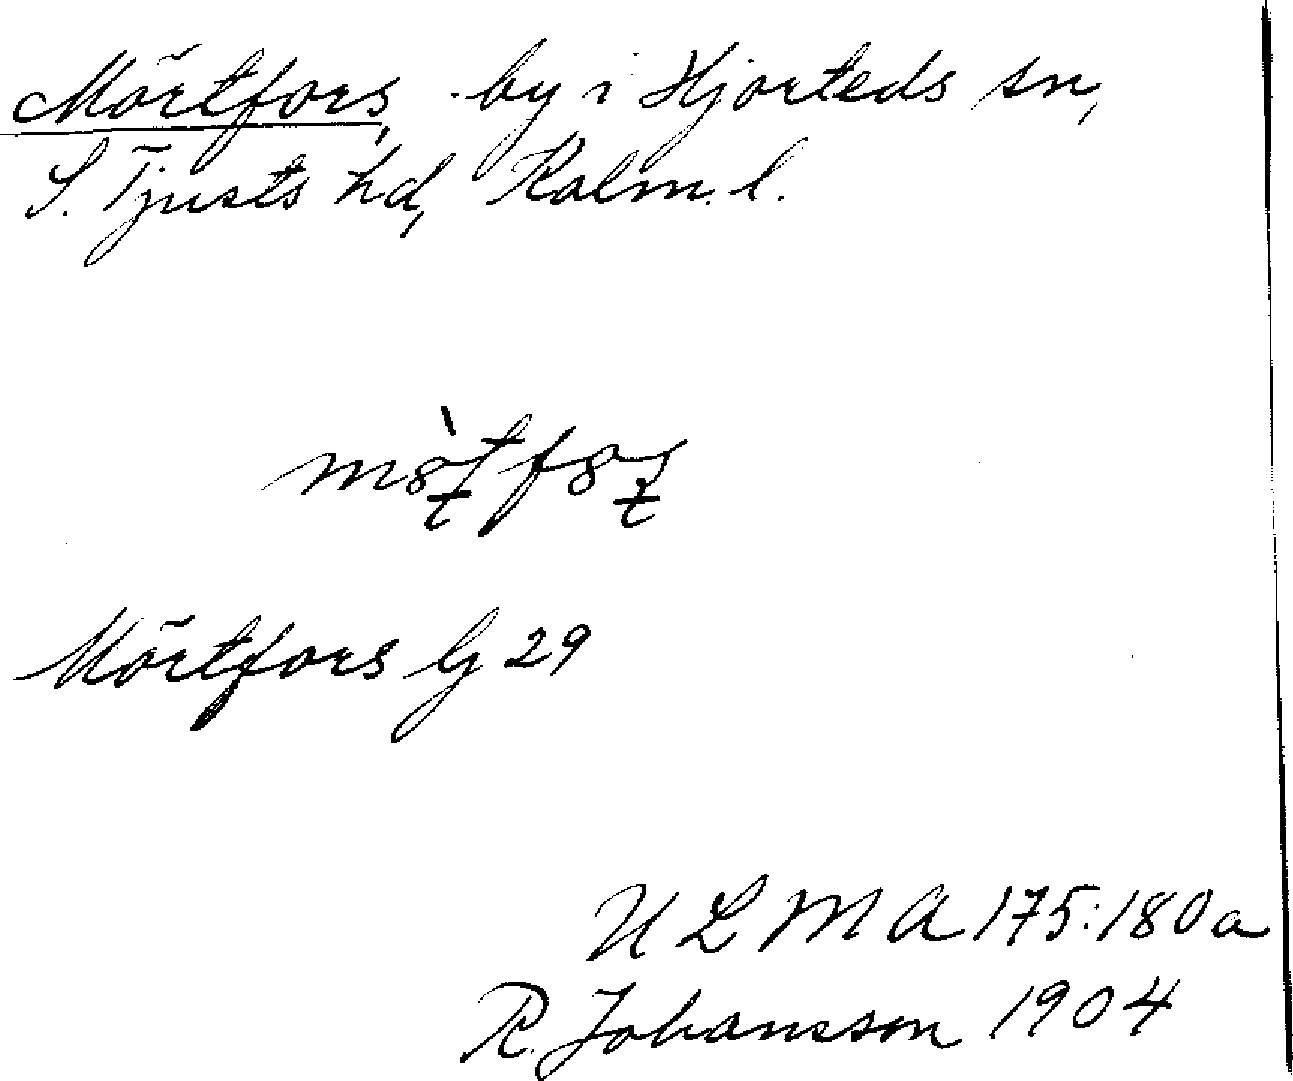 Mörtfors, by i Hjorteds sn,
S. Tjusts hd, Kalm. l.
Mörtfors G 29
ULMA 175:180a
R. Johansson 1904